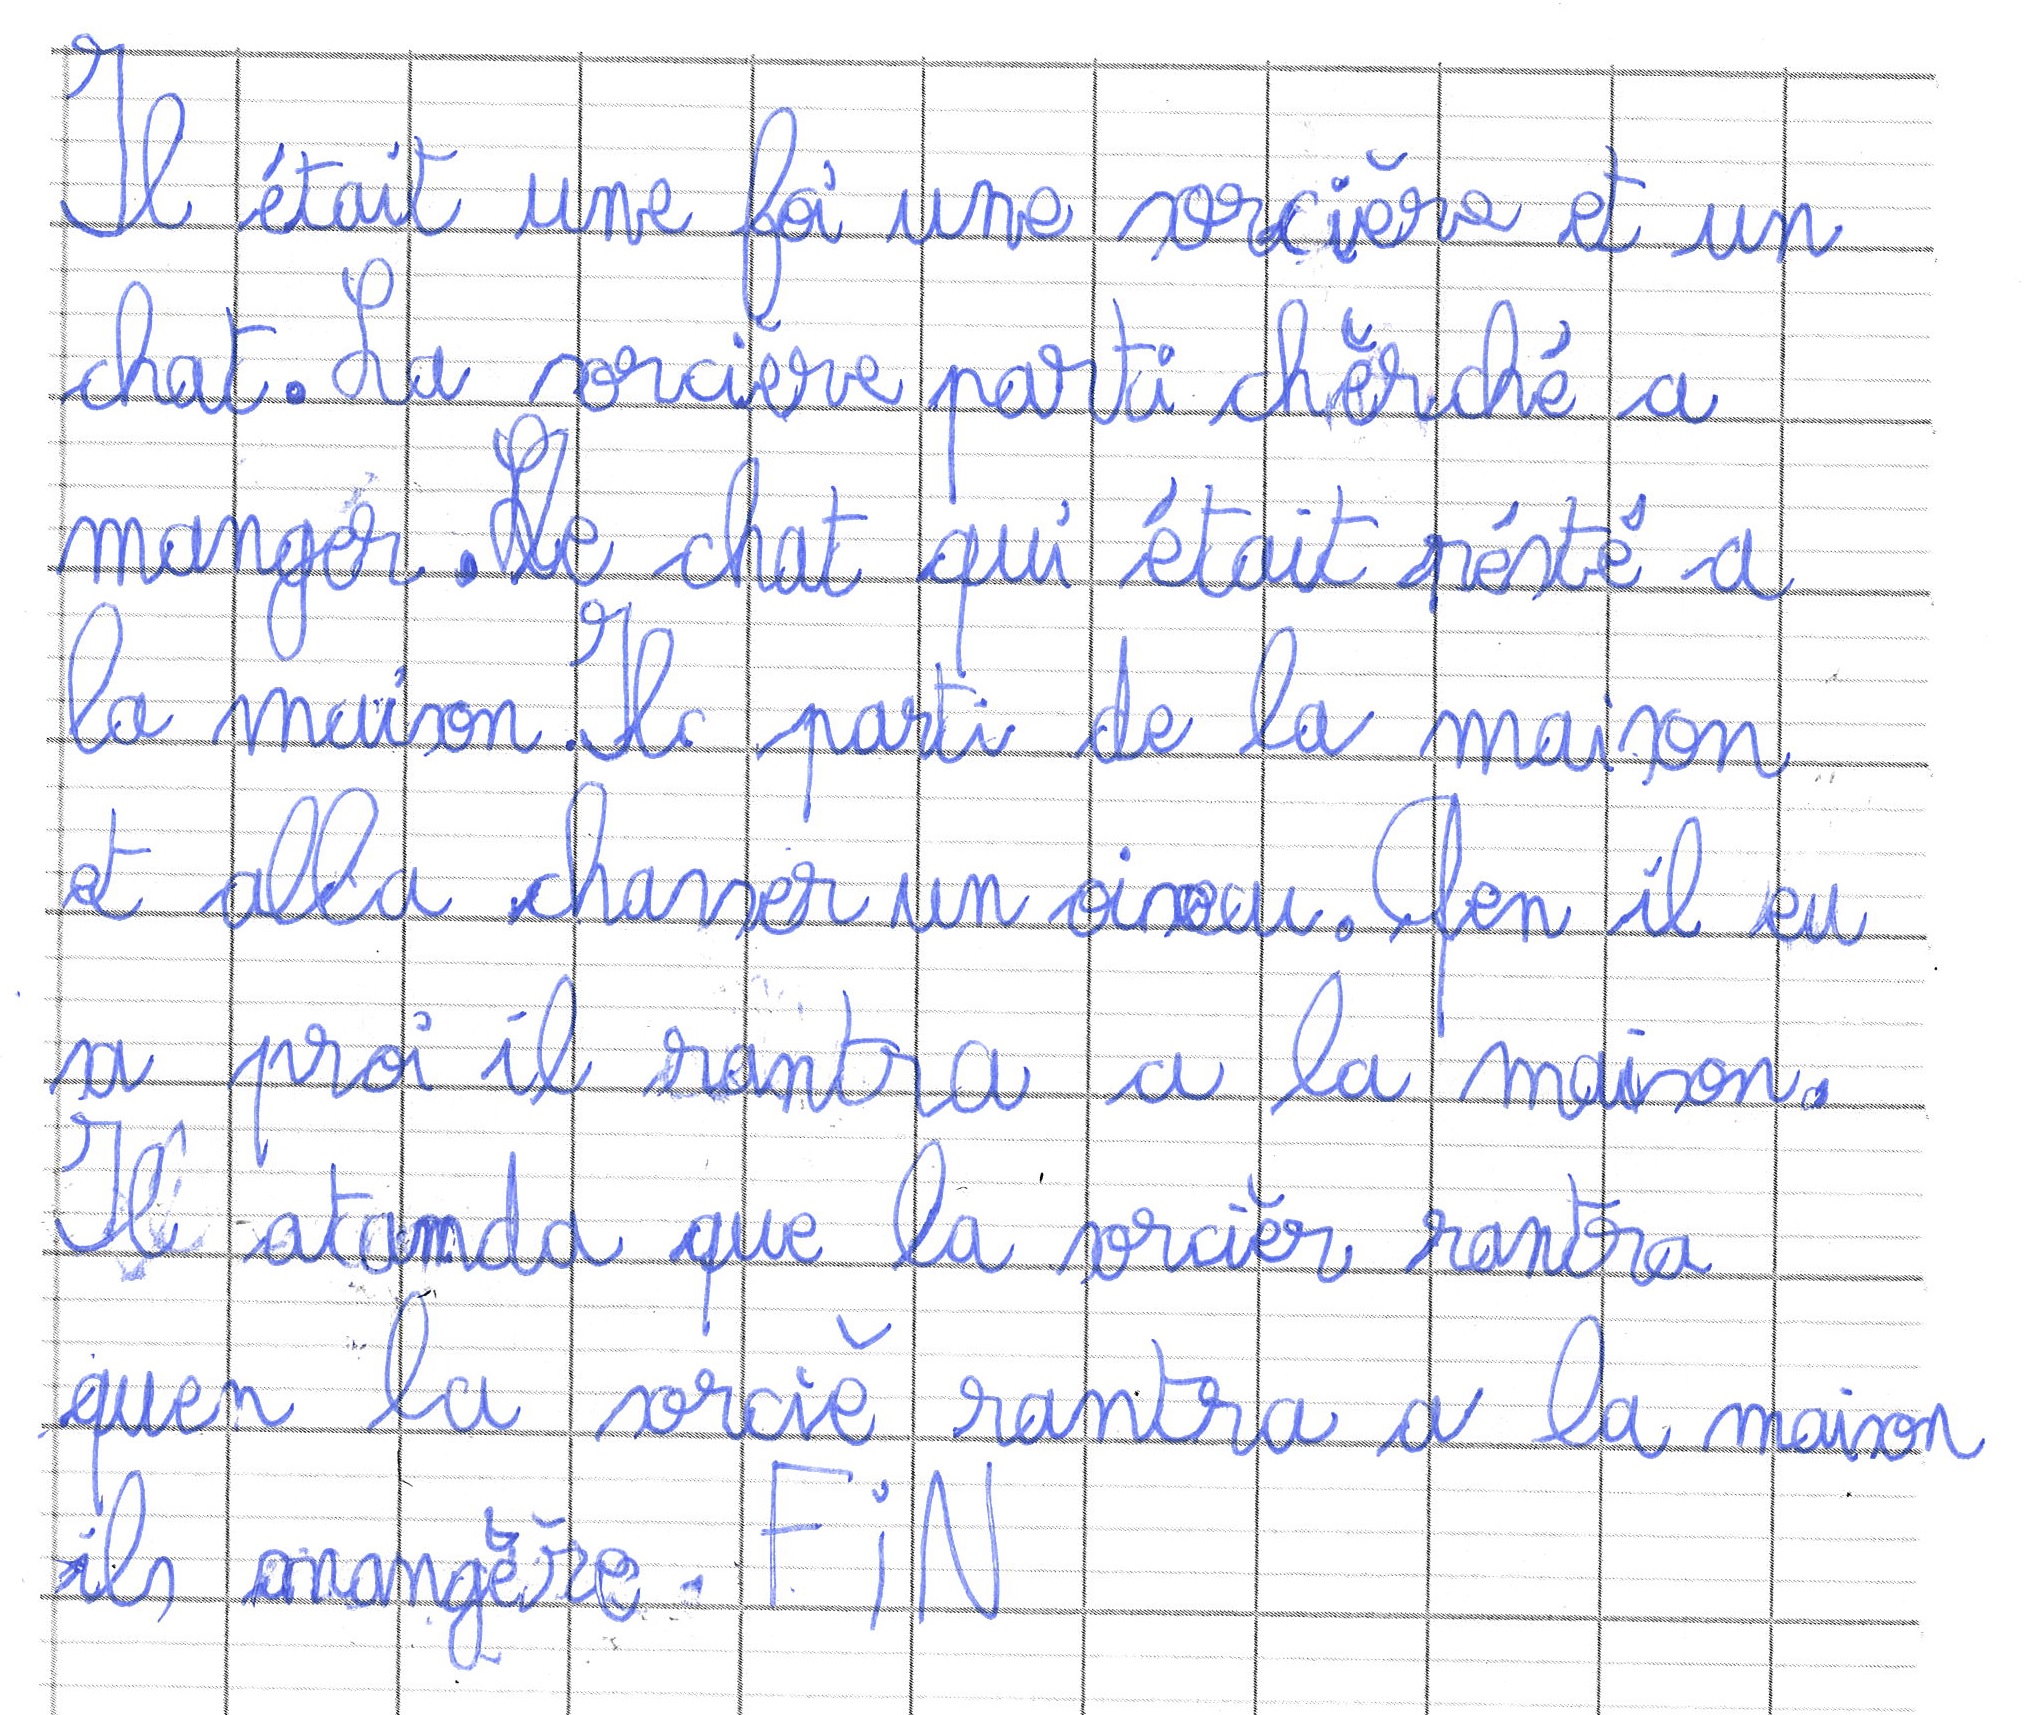 Il était une foi une sorcière et un
chat. La sorcière parti chèrché a
manger. Le chat qui était résté a
la maison. Il parti de la maison
et alla chasser un oiseau. Qen il eu
sa proi il rantra a la maison.
Il atanda que la sorcièr rantra
quen la sorciè rantra a la maison
ils mangère. FiN